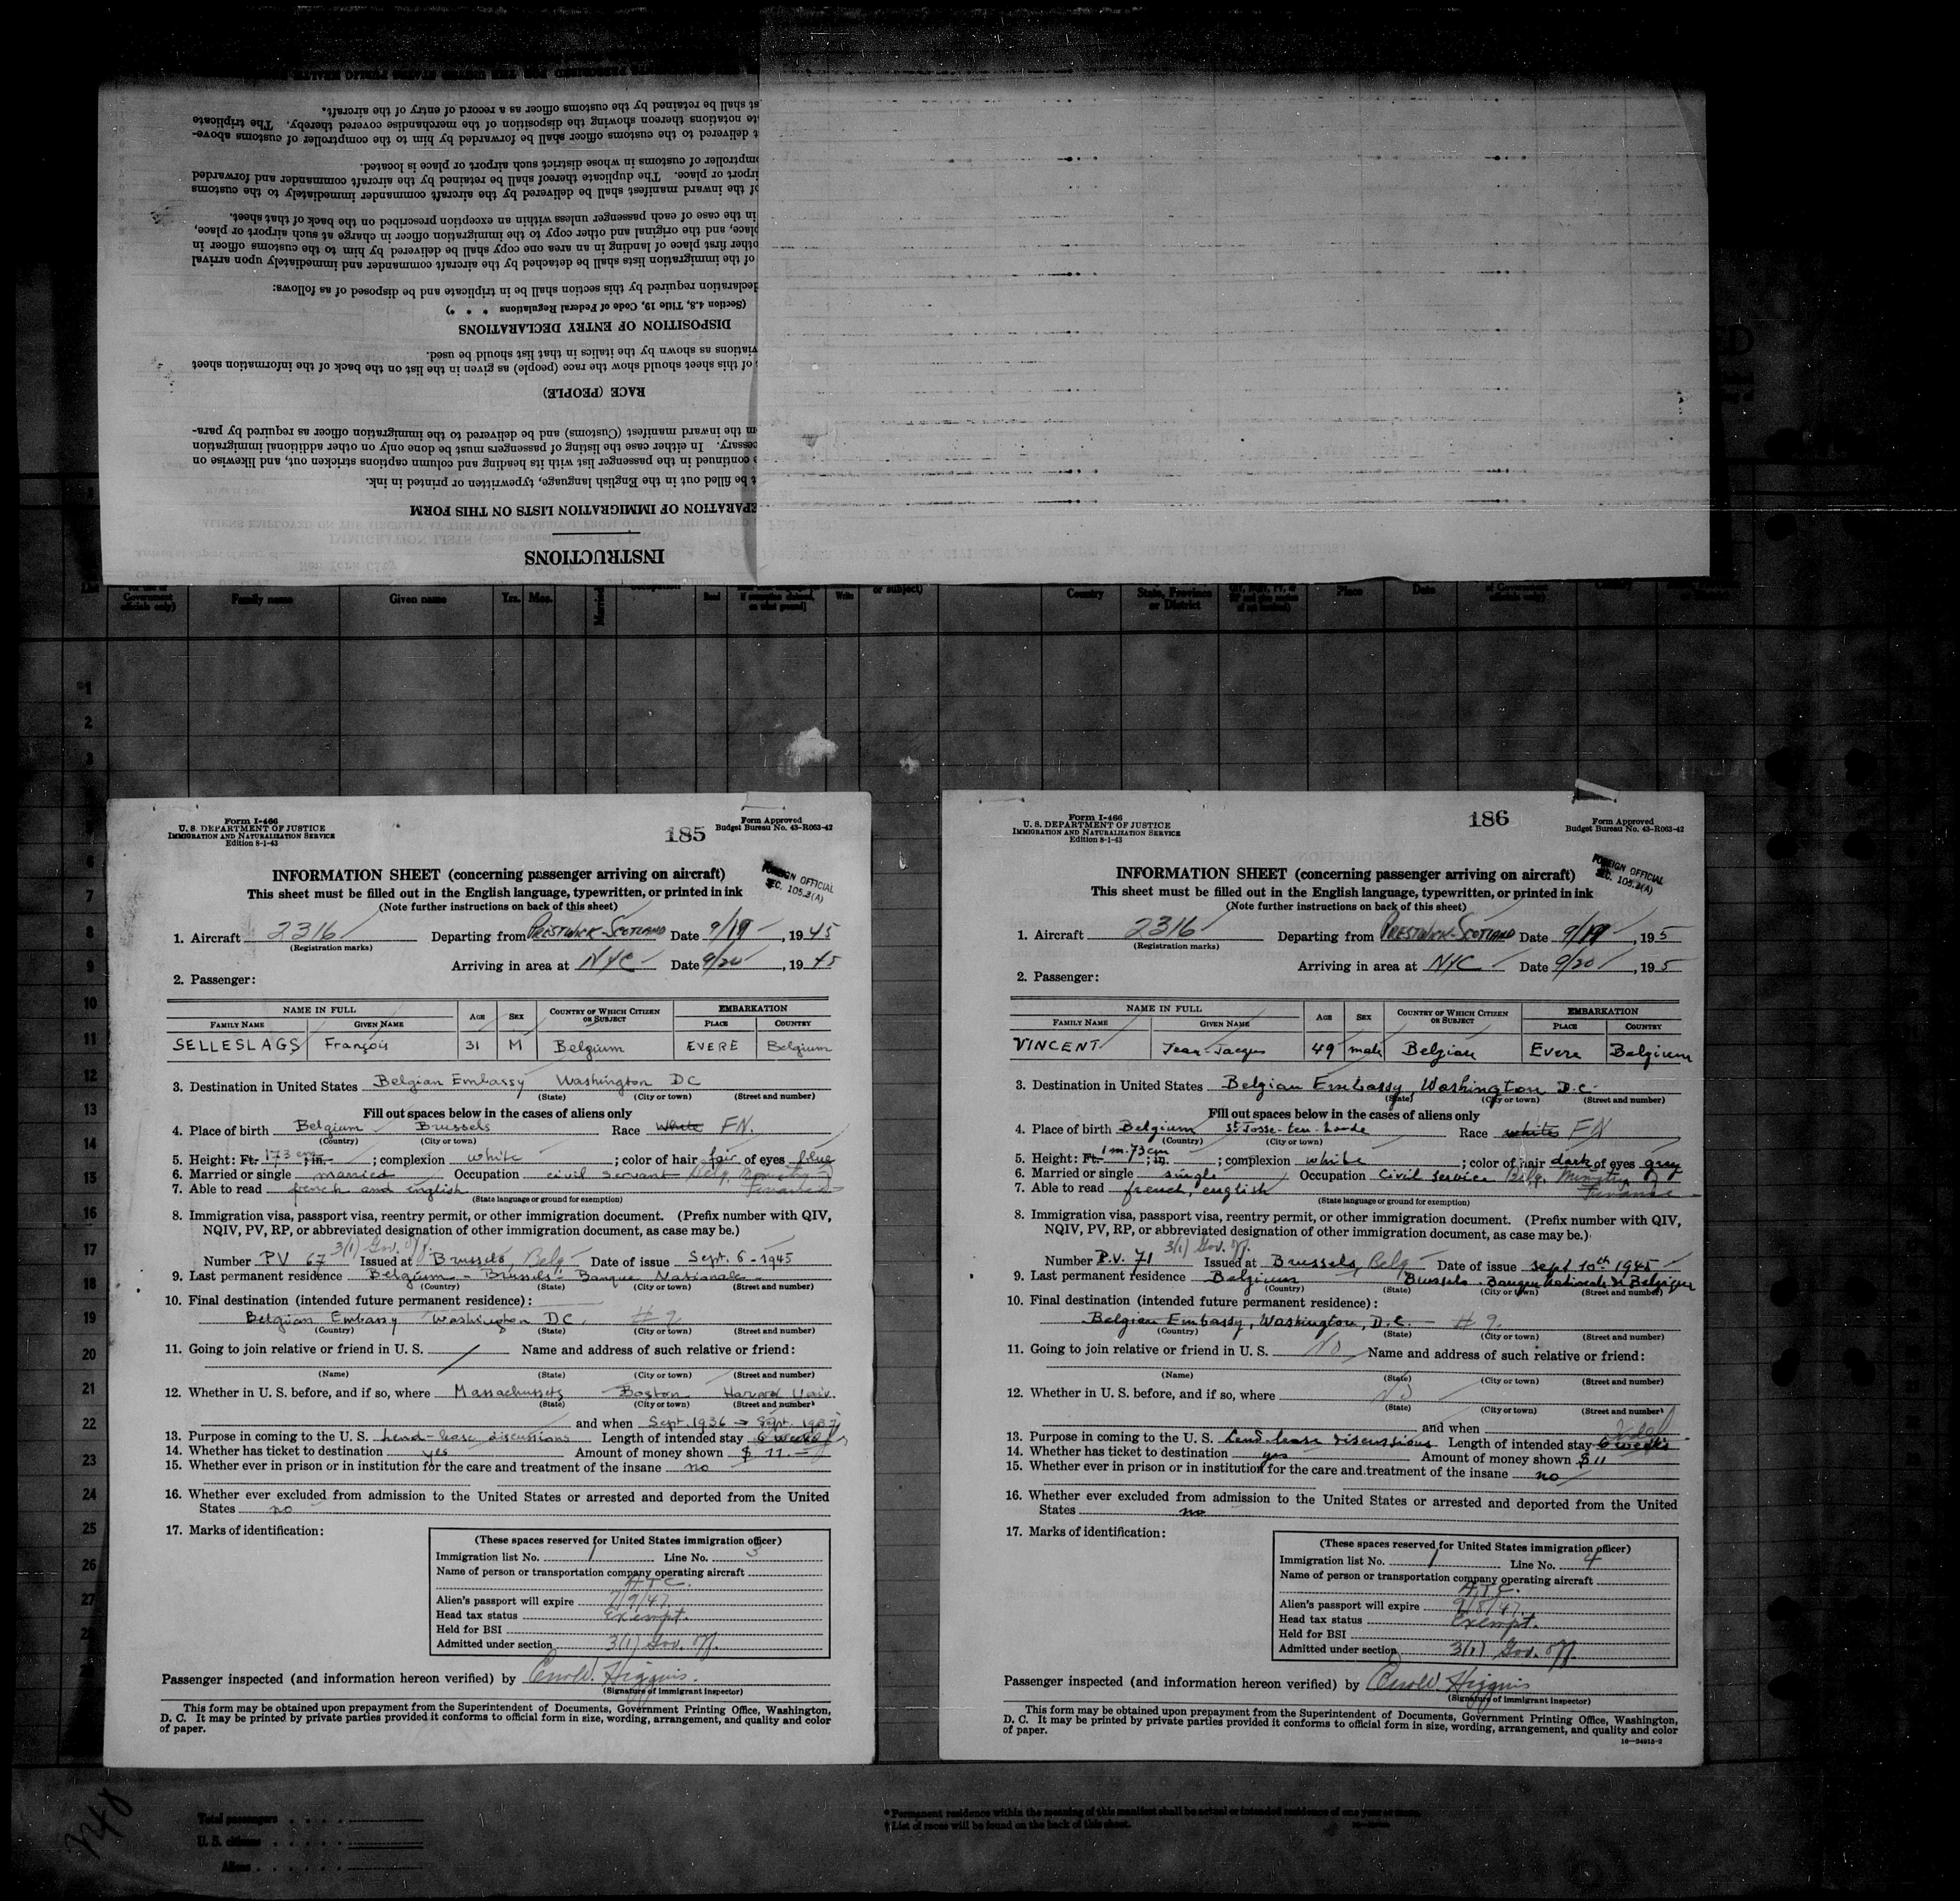 st shall be retained by the customs officer as a record of entry of the aircraft.
te notations thereon showing the disposition of the merchandise covered thereby. The triplicate
t delivered to the customs officer shall be forwarded by him to the comptroller of customs above-
mptroller of customs in whose district such airport or place is located.
irport or place. The duplicate thereof shall be retained by the aircraft commander and forwarded
of the inward manifest shall be delivered by the aircraft commander immediately to the customs
in the case of each passenger unless within an exception prescribed on the back of that sheet.
place, and the original and other copy to the immigration officer in charge at such airport or place,
other first place of landing in an area one copy shall be delivered by him to the customs officer in
of the immigration lists shall be detached by the aircraft commander and immediately upon arrival
declaration required by this section shall be in triplicate and be disposed of as follows:
(Section 4.8, Title 19, Code of Federal Regulations * * *)
DISPOSITION OF ENTRY DECLARATIONS
viations as shown by the italics in that list should be used.
of this sheet should show the race (people) as given in the list on the back of the information sheet
RACE (PEOPLE)
m the inward manifest (Customs) and be delivered to the immigration officer as required by para-
cessary. In either case the listing of passengers must be done only on other additional immigration
e continued in the passenger list with its heading and column captions stricken out, and likewise on
t be filled out in the English language, typewritten or printed in ink.
EPARATION OF IMMIGRATION LISTS ON THIS FORM
INSTRUCTIONS
Government officials only) Family name Given name Yrs. Mos. Married Read Write or subject) Country State, Province or District Place Date of Government officials only)
1
2
3
6
7
8
9
10
11
12
13
14
15
16
17
18
19
20
21
22
23
24
25
26
27
Form I-466
U. S. DEPARTMENT OF JUSTICE
IMMIGRATION AND NATURALIZATION SERVICE
Edition 8-1-43
185
Form Approved
Budget Bureau No. 43-R063-42
FOREIGN OFFICIAL
SEC. 105.3(A)
INFORMATION SHEET (concerning passenger arriving on aircraft)
This sheet must be filled out in the English language, typewritten, or printed in ink
(Note further instructions on back of this sheet)
1. Aircraft 2316 Departing from PRESTWICK-SCOTLAND Date 9/19, 1945
(Registration marks)
Arriving in area at NYC Date 9/20, 1945
2. Passenger:
NAME IN FULL AGE SEX COUNTRY OF WHICH CITIZEN OR SUBJECT EMBARKATION
FAMILY NAME GIVEN NAME PLACE COUNTRY
SELLESLAGS François 31 M Belgium EVERE Belgium
3. Destination in United States Belgian Embassy Washington DC
(State) (City or town) (Street and number)
Fill out spaces below in the cases of aliens only
4. Place of birth Belgium Brussels Race White FN.
(Country) (City or town)
5. Height: Ft. 173 cm; in. ; complexion white ; color of hair fair of eyes blue
6. Married or single married Occupation civil servant Belg. Ministry
Finance
7. Able to read french and english
(State language or ground for exemption)
8. Immigration visa, passport visa, reentry permit, or other immigration document. (Prefix number with QIV,
NQIV, PV, RP, or abbreviated designation of other immigration document, as case may be.)
3(1) Gov. Off.
Number PV 67 Issued at Brussels, Belg Date of issue Sept. 6 - 1945
9. Last permanent residence Belgium - Brussels - Banque Nationale
(Country) (State) (City or town) (Street and number)
10. Final destination (intended future permanent residence):
Belgian Embassy Washington DC. # 9
(Country) (State) (City or town) (Street and number)
11. Going to join relative or friend in U. S. Name and address of such relative or friend:
(Name) (State) (City or town) (Street and number)
12. Whether in U. S. before, and if so, where Massachussets Boston Harvard Univ.
(State) (City or town) (Street and number)
and when Sept. 1936 - Sept. 1937
13. Purpose in coming to the U. S. Lend-lease discussions Length of intended stay 6 weeks
14. Whether has ticket to destination yes Amount of money shown $ 11.-
15. Whether ever in prison or in institution for the care and treatment of the insane no
16. Whether ever excluded from admission to the United States or arrested and deported from the United
States no
17. Marks of identification:
(These spaces reserved for United States immigration officer)
Immigration list No. 1 Line No. 3
Name of person or transportation company operating aircraft
A.T.C.
Alien's passport will expire 7/9/47.
Head tax status Exempt.
Held for BSI
Admitted under section 3(1) Gov. Off.
Passenger inspected (and information hereon verified) by Higgins
(Signature of immigrant inspector)
This form may be obtained upon prepayment from the Superintendent of Documents, Government Printing Office, Washington,
D. C. It may be printed by private parties provided it conforms to official form in size, wording, arrangement, and quality and color
of paper.
Form I-466
U. S. DEPARTMENT OF JUSTICE
IMMIGRATION AND NATURALIZATION SERVICE
Edition 8-1-43
186
Form Approved
Budget Bureau No. 43-R063-42
FOREIGN OFFICIAL
SEC. 105.3(A)
INFORMATION SHEET (concerning passenger arriving on aircraft)
This sheet must be filled out in the English language, typewritten, or printed in ink
(Note further instructions on back of this sheet)
1. Aircraft 2316 Departing from PRESTWICK-SCOTLAND Date 9/19, 195
(Registration marks)
Arriving in area at NYC Date 9/20, 195
2. Passenger:
NAME IN FULL AGE SEX COUNTRY OF WHICH CITIZEN OR SUBJECT EMBARKATION
FAMILY NAME GIVEN NAME PLACE COUNTRY
VINCENT Jean-Jacques 49 male Belgian Evere Belgium
3. Destination in United States Belgian Embassy, Washington D.C.
(State) (City or town) (Street and number)
Fill out spaces below in the cases of aliens only
4. Place of birth Belgium St Josse-ten-Noode Race white FN
(Country) (City or town)
5. Height: Ft. 1 m. 73 cm ; in. ; complexion white ; color of hair dark of eyes gray
6. Married or single single Occupation Civil service Belg. Ministry
Finance
7. Able to read french, english
(State language or ground for exemption)
8. Immigration visa, passport visa, reentry permit, or other immigration document. (Prefix number with QIV,
NQIV, PV, RP, or abbreviated designation of other immigration document, as case may be.)
3(1) Gov. Off.
Number P.V. 71 Issued at Brussels, Belg Date of issue Sept 10th 1945
9. Last permanent residence Belgium Brussels - Banque Nationale de Belgique
(Country) (State) (City or town) (Street and number)
10. Final destination (intended future permanent residence):
Belgian Embassy, Washington, D.C. - # 9.
(Country) (State) (City or town) (Street and number)
11. Going to join relative or friend in U. S. No Name and address of such relative or friend:
(Name) (State) (City or town) (Street and number)
12. Whether in U. S. before, and if so, where No
(State) (City or town) (Street and number)
and when
13. Purpose in coming to the U. S. Lend-lease discussions Length of intended stay 6 weeks
14. Whether has ticket to destination yes Amount of money shown $ 11
15. Whether ever in prison or in institution for the care and treatment of the insane no
16. Whether ever excluded from admission to the United States or arrested and deported from the United
States no
17. Marks of identification:
(These spaces reserved for United States immigration officer)
Immigration list No. 1 Line No. 4
Name of person or transportation company operating aircraft
A.T.C.
Alien's passport will expire 9/8/47.
Head tax status Exempt.
Held for BSI
Admitted under section 3(1) Gov. Off.
Passenger inspected (and information hereon verified) by Higgins
(Signature of immigrant inspector)
This form may be obtained upon prepayment from the Superintendent of Documents, Government Printing Office, Washington,
D. C. It may be printed by private parties provided it conforms to official form in size, wording, arrangement, and quality and color
of paper.
16-24915-2
Total passengers
U. S. citizens
Aliens
* Permanent residence within the meaning of this manifest shall be actual or intended residence of one year or more.
† List of races will be found on the back of this sheet.